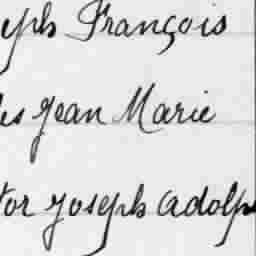 eph François
es Jean Marie
tor Joseph Adolph